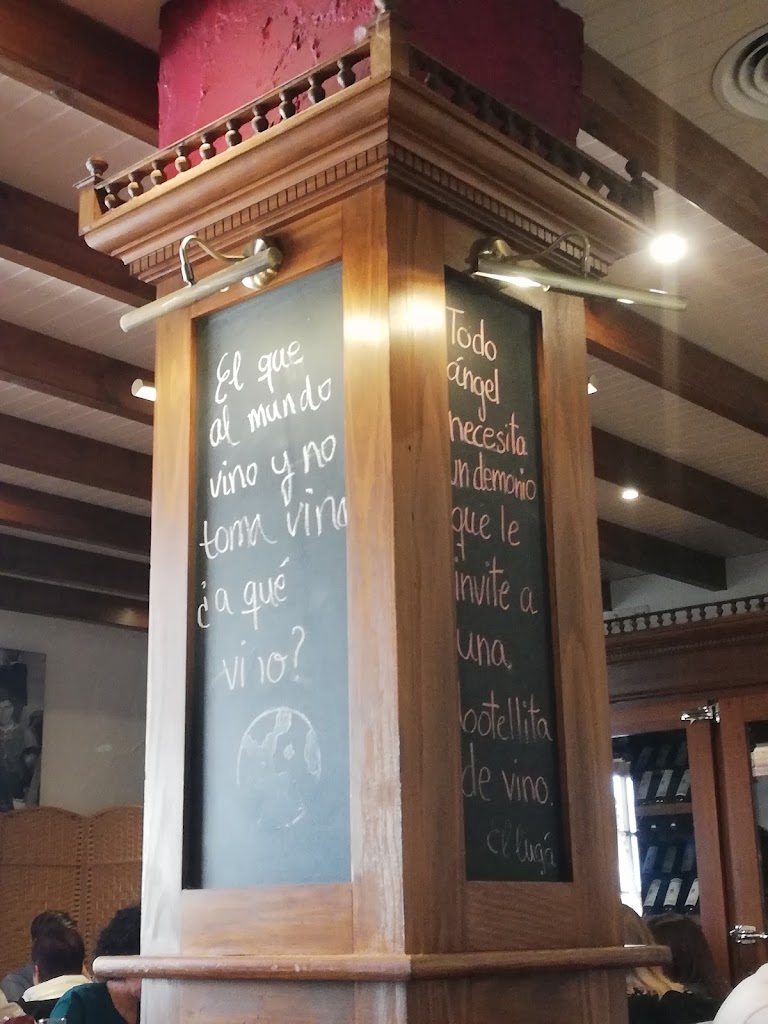 El que
al mundo
vino y no
toma vino
¿a qué
vino?
Todo
ángel
necesita
un demonio
que le
invite a
una
botellita
de vino.